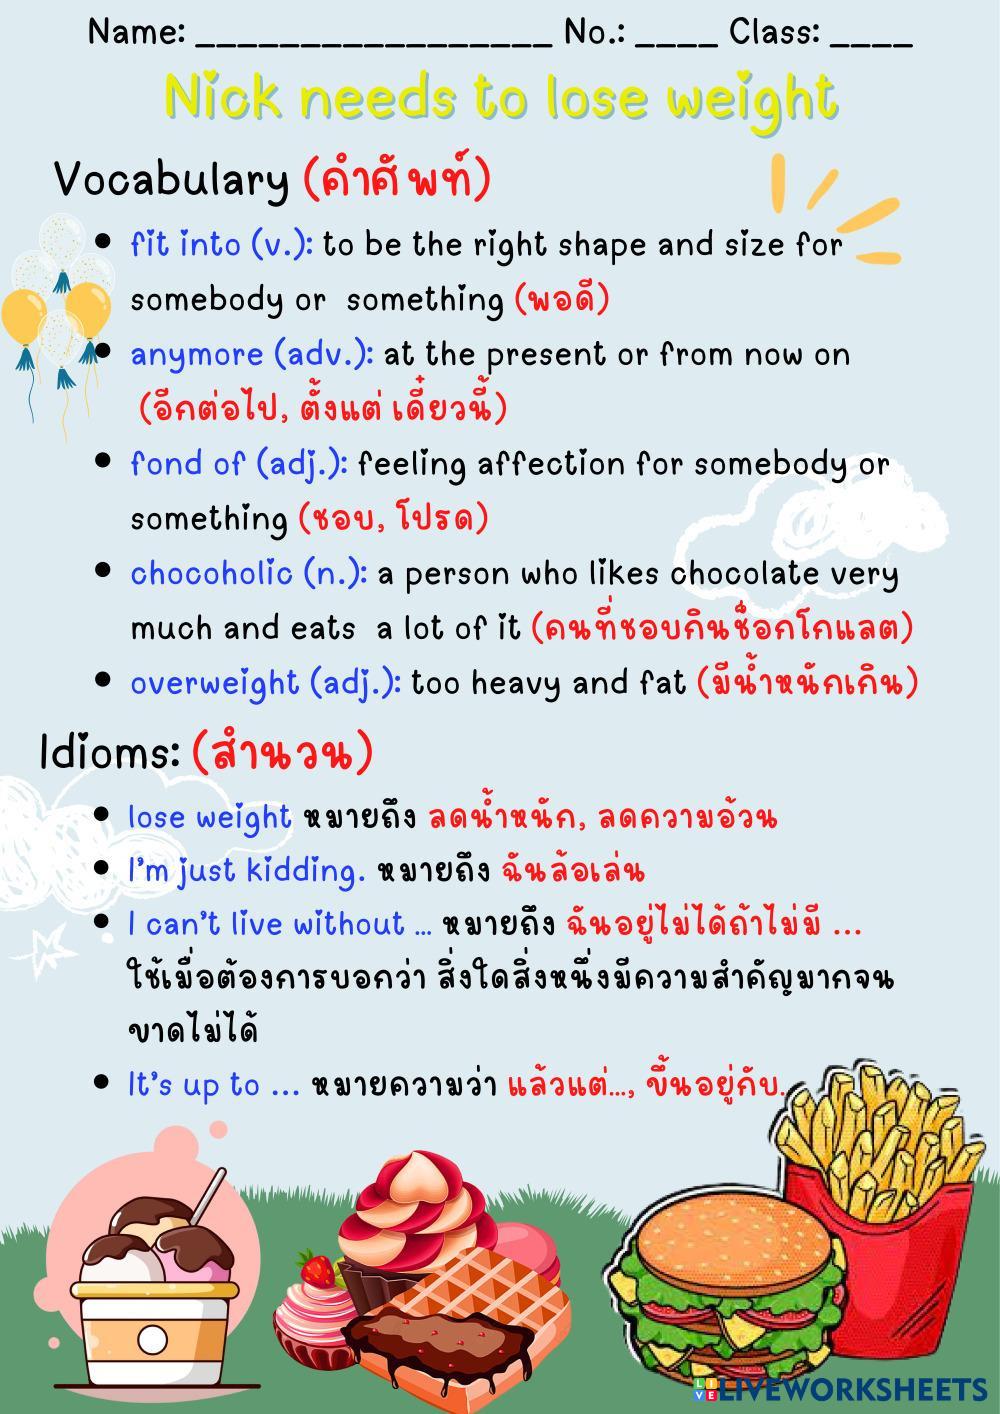 Name: _________________ No.: ____ Class: ____
Nick needs to lose weight
Vocabulary (คำศัพท์)
• fit into (v.): to be the right shape and size for
somebody or something (พอดี)
• anymore (adv.): at the present or from now on
(อีกต่อไป, ตั้งแต่ เดี๋ยวนี้)
• fond of (adj.): feeling affection for somebody or
something (ชอบ, โปรด)
• chocoholic (n.): a person who likes chocolate very
much and eats a lot of it (คนที่ชอบกินช็อกโกแลต)
• overweight (adj.): too heavy and fat (มีน้ำหนักเกิน)
Idioms: (สำนวน)
• lose weight หมายถึง ลดน้ำหนัก, ลดความอ้วน
• I'm just kidding. หมายถึง ฉันล้อเล่น
• I can't live without ... หมายถึง ฉันอยู่ไม่ได้ถ้าไม่มี ...
ใช้เมื่อต้องการบอกว่า สิ่งใดสิ่งหนึ่งมีความสำคัญมากจน
ขาดไม่ได้
• It's up to ... หมายความว่า แล้วแต่..., ขึ้นอยู่กับ..
LIVEWORKSHEETS